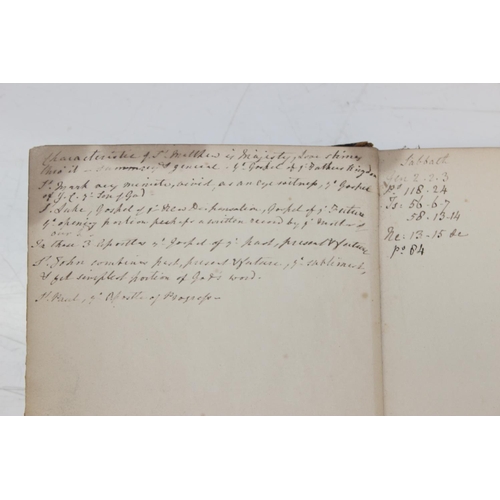 Characteristic of St. Matthew is Majesty, Love shines
thro' it - summary & general - ye Gospel of ye Fathers Kingdom
St. Mark very minute, vivid, as an eye witness, ye Gospel
of J. C. ye Son of God
St. Luke, Gospel of ye New Dispensation, Gospel of ye Future
ye opening portion a written record by ye
In these 3 Apostles ye Gospel of ye past, present & future
St. John combines past, present & future, ye sublimest,
& yet simplest portion of God's word.
St. Paul, ye Apostle of Progress.
Sabbath
Gen 2. 2. 3
Ps 118 - 24
Is: 56 - 6. 7
58 - 13. 14
Ne: 13 - 15 &c
Ps 84